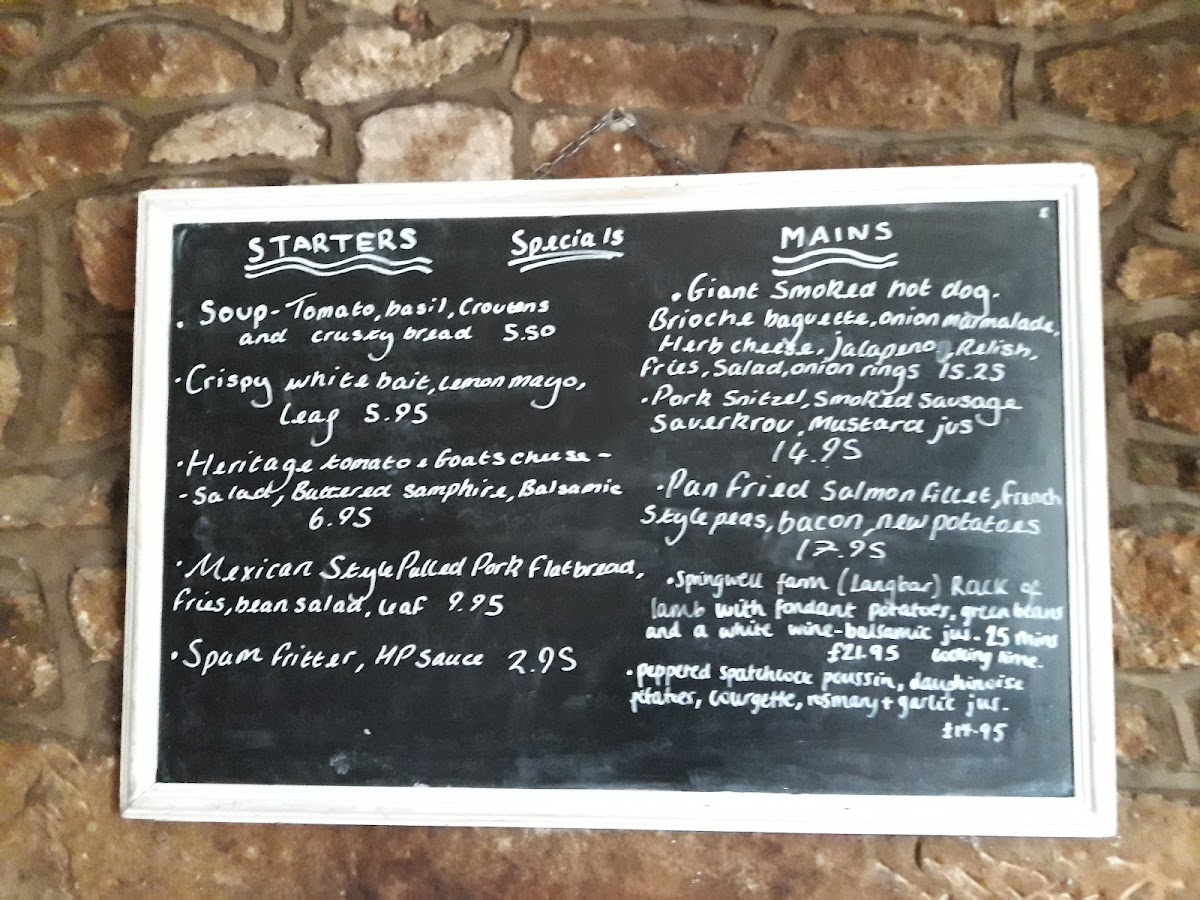 STARTERS
Specials
MAINS
· Soup - Tomato, basil, Croutens
and crusty bread 5.50
· Crispy white bait, Lemon mayo,
Leaf 5.95
· Heritage tomato & Goats cheese -
- Salad, Buttered samphire, Balsamic
6.95
· Mexican Style Pulled Pork flatbread,
fries, bean salad, Leaf 9.95
· Spam fritter, HP Sauce 2.95
· Giant Smoked hot dog.
Brioche baguette, onion marmalade,
Herb cheese, jalapeno, Relish,
fries, Salad, onion rings 15.25
· Pork Snitzel, Smoked Sausage
Saverkrov, Mustard jus
14.95
· Pan Fried Salmon fillet, French
Style peas, bacon, new potatoes
17.95
· Springwell farm (Langbar) Rack of
lamb with fondant potatoes, green beans
and a white wine-balsamic jus. 25 mins
£21.95 cooking time.
· peppered spatchcock poussin, dauphinoise
potatoes, courgette, rosmary + garlic jus.